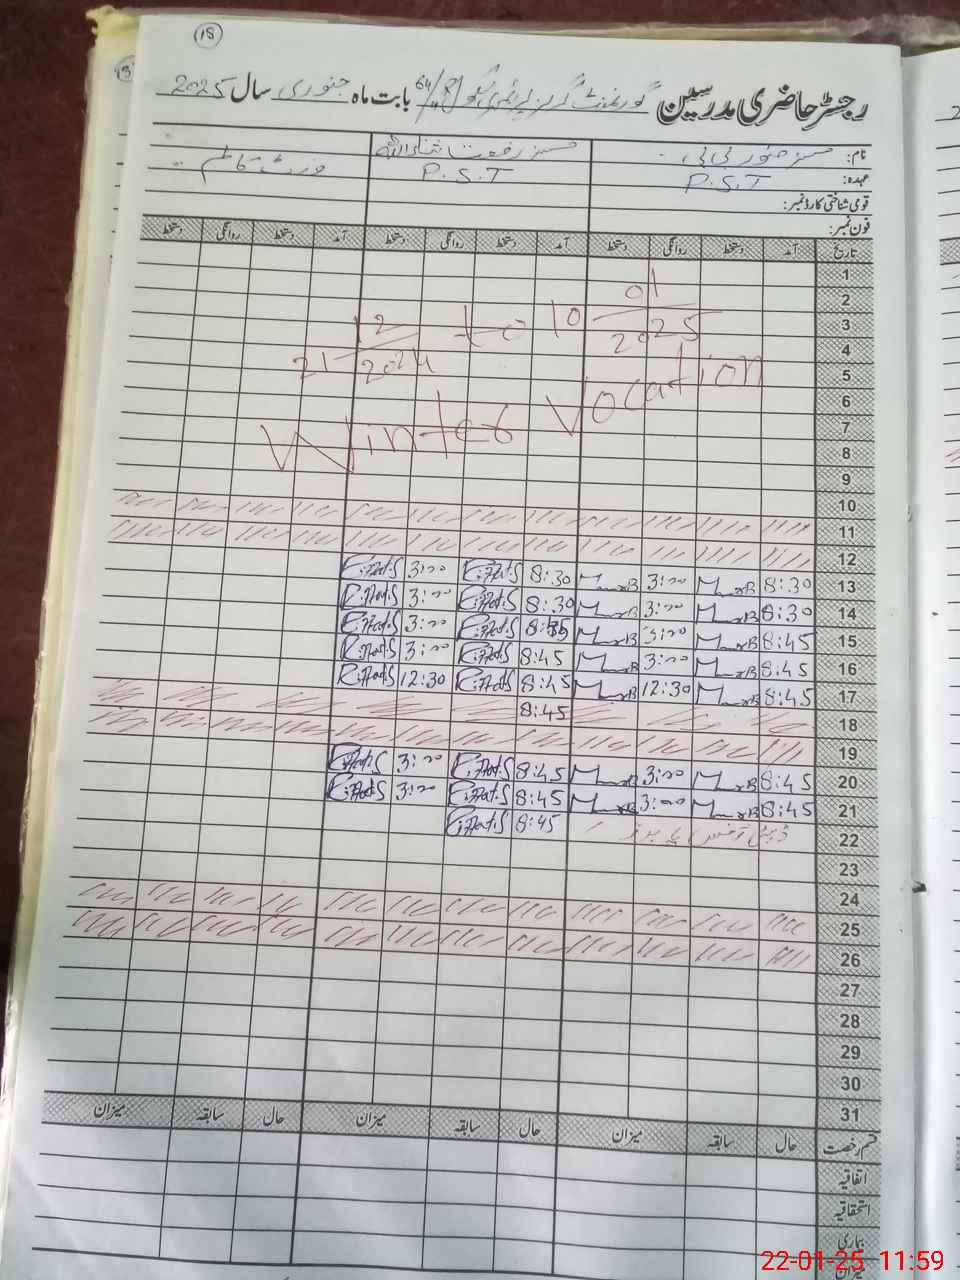 18
رجسٹر حاضری مدرسین گورنمنٹ گرلز پرائمری سکول 64 بابت ماہ جنوری سال 2025
نام: مسز منور بی بی مسز رفعت شناءاللہ
عہدہ: P.S.T P.S.T
قومی شناختی کارڈ نمبر:
فون نمبر:
تاریخ آمد دستخط روانگی دستخط آمد دستخط روانگی دستخط آمد دستخط روانگی دستخط
1
2
3
4
5
6
7
8
9
10
21 12/2024 to 10 01/2025
Winter Vocation
11
12
13 8:30 3:00 8:30 Riffat.S 3:00 Riffat.S
14 8:30 3:00 8:30 Riffat.S 3:00 Riffat.S
15 8:45 3:00 8:45 Riffat.S 3:00 Riffat.S
16 8:45 3:00 8:45 Riffat.S 3:00 Riffat.S
17 8:45 12:30 8:45 Riffat.S 12:30 Riffat.S
18 8:45
19
20 8:45 3:00 8:45 Riffat.S 3:00 Riffat.S
21 8:45 3:00 8:45 Riffat.S 3:00 Riffat.S
22 8:45 Riffat.S
23
24
25
26
27
28
29
30
31
قسم رخصت حال سابقہ میزان حال سابقہ میزان حال سابقہ میزان
اتفاقیہ
استحقاقیہ
بیماری
میزان
22-01-25 11:59